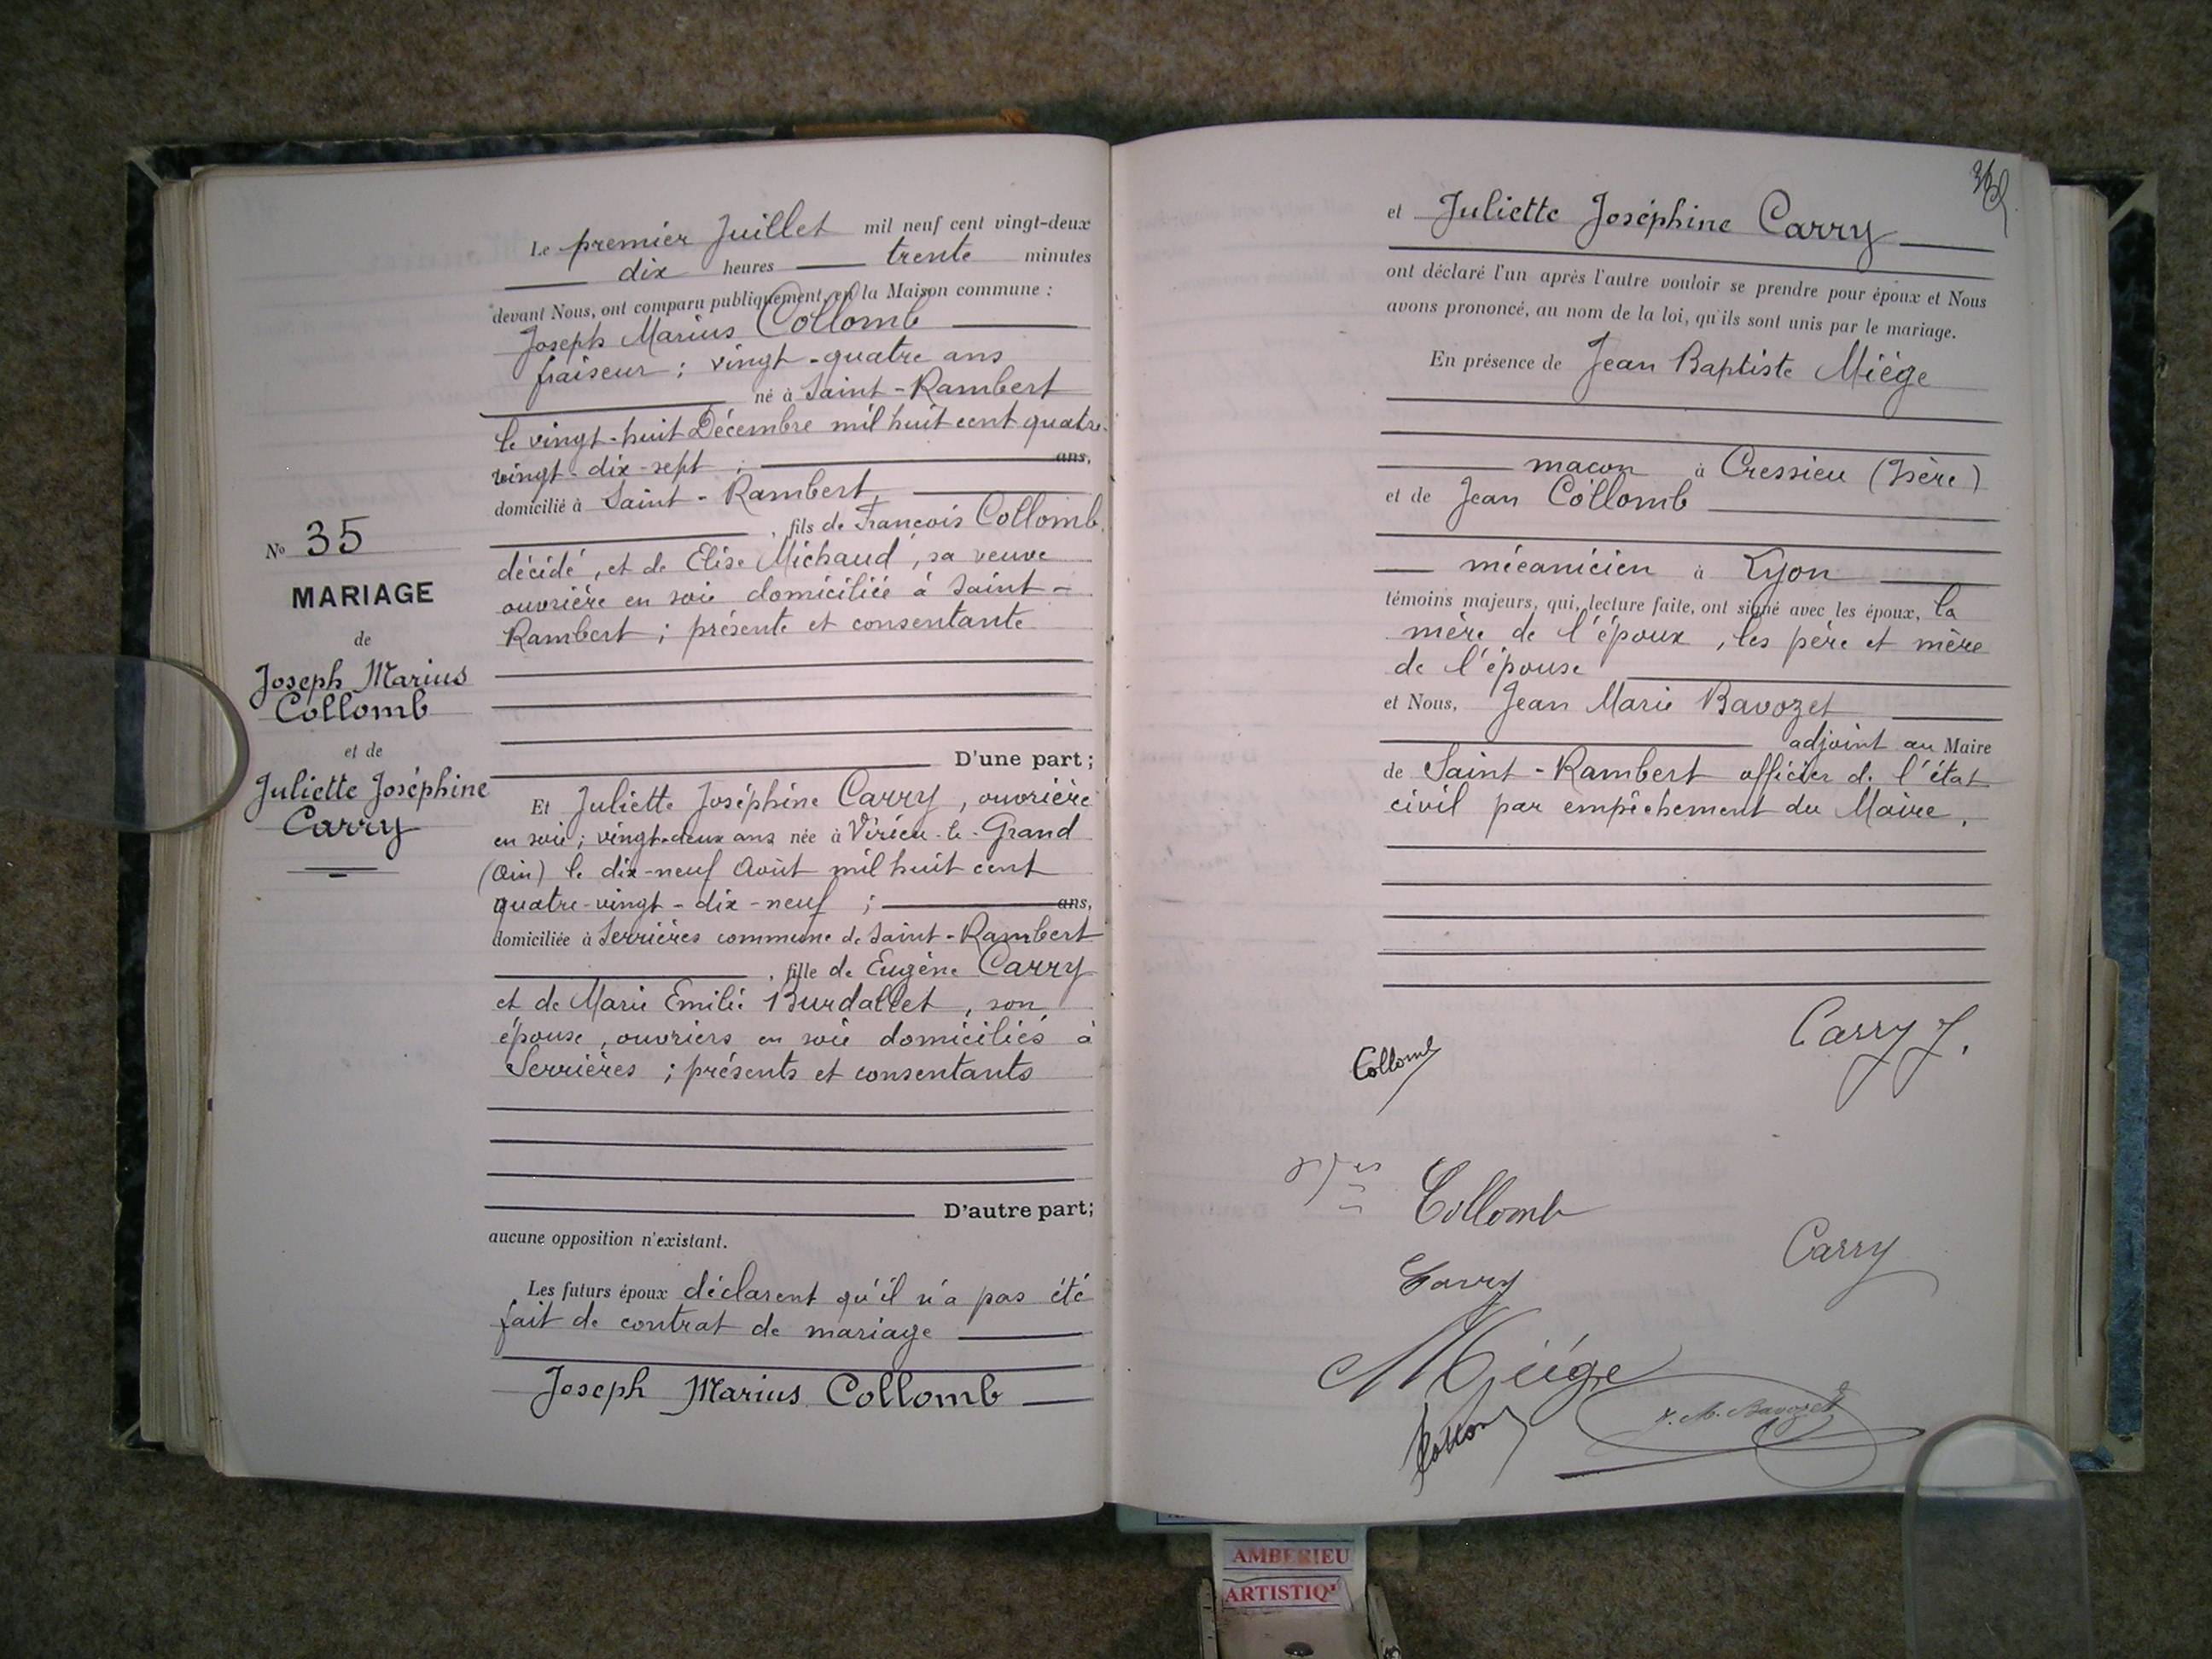 Le premier Juillet mil neuf cent vingt-deux
dix heures trente minutes
devant Nous, ont comparu publiquement, en la Maison commune :
Joseph Marius Collomb
fraiseur ; vingt-quatre ans
né à Saint-Rambert
le vingt-huit Décembre mil huit cent quatre-
vingt-dix-sept ; ans,
domicilié à Saint-Rambert,
, fils de François Collomb,
décédé, et de Elise Michaud, sa veuve
ouvrière en soie domiciliée à Saint-
Rambert ; présente et consentante
D'une part ;
Et Juliette Joséphine Carry, ouvrière
en soie ; vingt-deux ans née à Virieu-le-Grand
(Ain) le dix-neuf Août mil huit cent
quatre-vingt-dix-neuf ; ans,
domiciliée à Serrières commune de Saint-Rambert
, fille de Eugène Carry
et de Marie Emilie Burdallet, son
épouse, ouvriers en soie domiciliés à
Serrières ; présents et consentants
D'autre part ;
aucune opposition n'existant.
Les futurs époux déclarent qu'il n'a pas été
fait de contrat de mariage
Joseph Marius Collomb
No 35
MARIAGE
de
Joseph Marius
Collomb
et de
Juliette Joséphine
Carry
et Juliette Joséphine Carry
ont déclaré l'un après l'autre vouloir se prendre pour époux et Nous
avons prononcé, au nom de la loi, qu'ils sont unis par le mariage.
En présence de Jean Baptiste Miège
maçon à Cressieu (Isère)
et de Jean Collomb
mécanicien à Lyon
témoins majeurs, qui, lecture faite, ont signé avec les époux, la
mère de l'époux, les père et mère
de l'épouse
et Nous, Jean Marie Bavozet
adjoint au Maire
de Saint-Rambert officier de l'état
civil par empêchement du Maire.
Collomb
Carry J.
Collomb
Carry
Carry
Miége
Collomb
J. M. Bavozet
AMBERIEU
ARTISTIQ